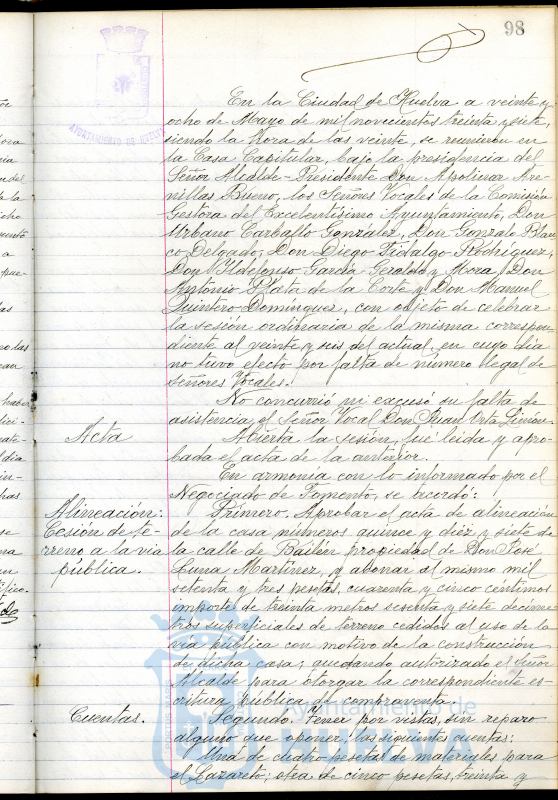 98
AYUNTAMIENTO DE HUELVA
En la Ciudad de Huelva a veinte y
ocho de Mayo de mil novecientos treinta y siete,
siendo la hora de las veinte, se reunieron en
la Casa Capitular, bajo la presidencia del
Señor Alcalde-Presidente Don Apolinar Are-
nillas Bueno, los Señores Vocales de la Comisión
Gestora del Excelentísimo Ayuntamiento, Don
Urbano Carballo González, Don Gonzalo Blan-
co Delgado, Don Diego Fidalgo Rodríguez,
Don Ildefonso García-Geraldo y Mora, Don
Antonio Plata de la Corte y Don Manuel
Quintero Domínguez, con objeto de celebrar
la sesión ordinaria de la misma correspon-
diente al veinte y seis del actual, en cuyo dia
no tuvo efecto por falta de número legal de
señores Vocales.
No concurrió ni excusó su falta de
asistencia, el Señor Vocal Don Juan
Acta
Abierta la sesión, fué leida y apro-
bada el acta de la anterior.
En armonía con lo informado por el
Negociado de Fomento, se acordó:
Alineación:
Cesión de te-
rreno a la via
pública.
Primero. Aprobar el acta de alineación
de la casa números quince y diez y siete de
la calle de Bailén propiedad de Don José
Luna Martínez, y abonar al mismo mil
setenta y tres pesetas, cuarenta y cinco céntimos
importe de treinta metros sesenta y siete decíme-
tros superficiales de terreno cedidos al uso de la
via pública con motivo de la construcción
de dicha casa; quedando autorizado el Señor
Alcalde para otorgar la correspondiente es-
critura pública de compraventa.
Cuentas.
Segundo. Tener por vistas, sin reparo
alguno que oponer, las siguientes cuentas:
Una de cuatro pesetas de materiales para
el Lazareto; otra de cinco pesetas, treinta y
Ayuntamiento de
HUELVA